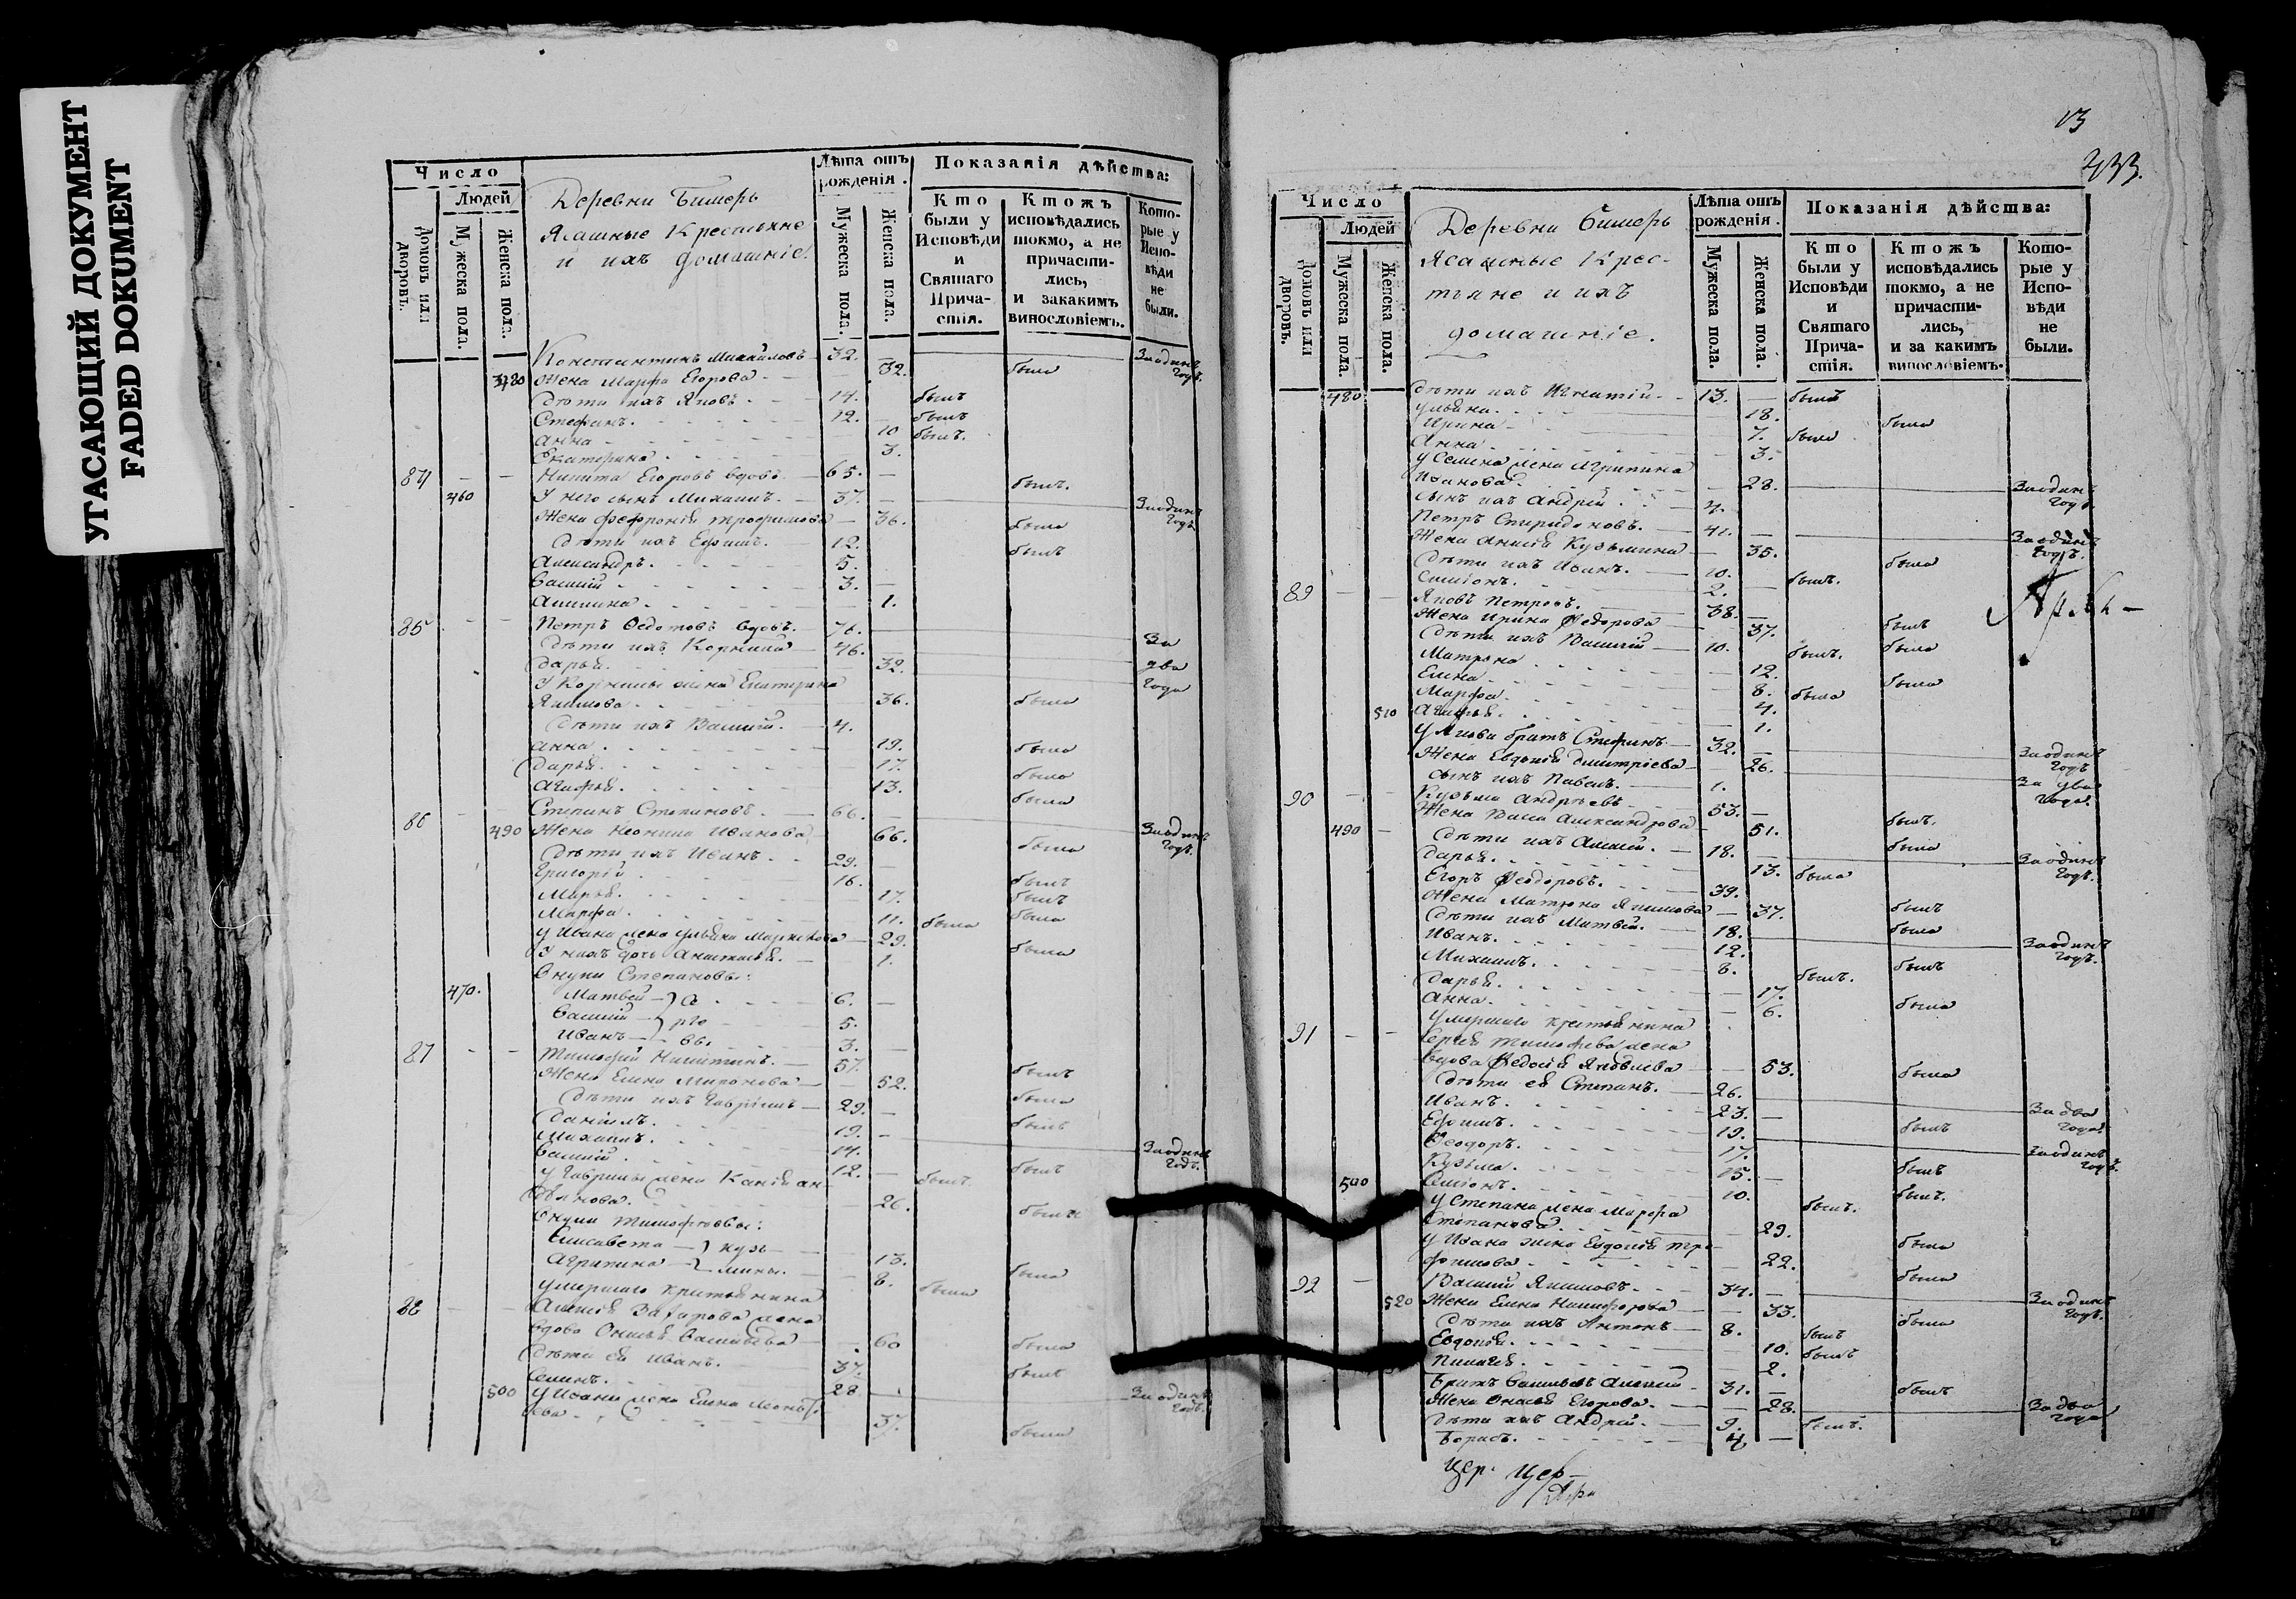 УГАСАЮЩИЙ ДОКУМЕНТ
FADED DOKUMENT
Число
Людей
Домовъ или дворовъ.
Мужеска пола.
Женска пола.
Деревни Бимерь
Ясашные Крестьяне
и ихъ домашніе.
Лѣта отъ рожденія.
Мужеска пола.
Женска пола.
Показанія дѣйства:
Кто были у Исповѣди и Святаго Причастія.
Ктожъ исповѣдались токмо, а не причастились, и закакимъ винословіемъ.
Которые у Исповѣди не были.
Константинъ Михайловъ 32. За одинъ годъ.
Жена Марфа Егорова 32. была
Дѣти ихъ Яковъ 14. былъ
Стефанъ. 12. былъ
Анна 10 былъ.
Екатерина 3.
84 Никита Егоровъ вдовъ 65. былъ.
460 У него сынъ Михаилъ. 37. За одинъ годъ.
Жена Феѳронія Трофимова 36. была
Дѣти ихъ Ефимъ. 12. былъ
Александръ. 5.
Василій 3.
1.
85 Петръ Ѳедотовъ вдовъ. 76. За
Дѣти ихъ Корнила 46. два
Дарья. 32. года
У Корнилы жена Екатерина
Якимова 36. была
Дѣти ихъ Василій. 4.
Анна. 19. была
Дарья. 17. была
Агафья. 13. была
86 Степанъ Степановъ. 66. За одинъ годъ.
490 Жена Неонила Иванова 66. была
Дѣти ихъ Иванъ. 29. былъ
Григорій 16. былъ
Марья. 17. была
Марфа. 11. была
У Ивана жена Ульяна 29. была
У нихъ дочь Анастасія. 1.
Внуки Степановы:
470. Матвей 6.
Василій 5.
Иванъ 3.
87 Тимофей Никитинъ. 57. былъ
Жена Елена Миронова 52. была
Дѣти ихъ Гаврілъ 29. былъ
Даніилъ. 19. За одинъ годъ.
Михаилъ. 14. былъ
Василій 12. былъ.
У Гаврилы жена
26. была
Внуки Тимофѣевы:
Елисавета 13. была
Агрипина 8. была
умершаго крестьянина
88 Алексѣя Захарова жена
вдова Васильева 60 была
Дѣти ея Иванъ. 37. былъ
Семенъ. 28 За одинъ годъ.
500 У Ивана жена Елена
37. была
13
433.
Число
Людей
Домовъ или дворовъ.
Мужеска пола.
Женска пола.
Деревни Бимерь
Ясашные Крес-
тьяне и ихъ
домашніе.
Лѣта отъ рожденія.
Мужеска пола.
Женска пола.
Показанія дѣйства:
Кто были у Исповѣди и Святаго Причастія.
Ктожъ исповѣдались токмо, а не причастились, и за какимъ винословіемъ.
Которые у Исповѣди не были.
480 Дѣти ихъ Игнатій 13. былъ
Ульяна. 18. была
Ирина 7. была
Анна 3.
у Семена жена Агрипина
Иванова 28. За одинъ годъ.
Сынъ ихъ Андрей 4.
Петръ Спиридоновъ. 41. За одинъ годъ.
Жена Анисія Кузьмина 35. была
Дѣти ихъ Иванъ. 10. былъ.
Симіонъ. 2.
89 Яковъ Петровъ. 38. былъ
Жена Ирина Ѳедорова 37. была
Дѣти ихъ Василій 10. былъ.
Матрона 12. была
Елена 8. была
Марфа 4.
510 Агафья. 1.
у Якова братъ Стефанъ 32. За одинъ годъ
Жена Евдокія Дмитріева 26. За два года.
Сынъ ихъ Павелъ. 1.
90 Кузьма Андрѣевъ 53. былъ.
Жена Александрова 51. была
490 Дѣти ихъ Алексѣй. 18. За одинъ годъ.
Дарья. 13. была
Егоръ Ѳеодоровъ. 39. былъ
Жена Матрона Якимова 37. была
Дѣти ихъ Матвѣй. 18. За одинъ годъ.
Иванъ. 12. былъ
Михаилъ. 8. былъ.
Дарья. 17. была
Анна. 6.
умершаго крестьянина
91 Сергѣя Тимофеева жена
вдова Ѳедосія Яковлева 53. была
Дѣти ея Степанъ. 26. За два года.
Иванъ. 23. былъ
Ефимъ. 19. За одинъ годъ.
Ѳеодоръ. 17. былъ
Кузьма. 15. былъ.
500 Симіонъ. 10. былъ.
у Степана жена Марфа
Степанова 29. была
у Ивана жена Евдокія Тро-
фимова 22. была
92 Василій Якимовъ. 34. За одинъ годъ.
520 Жена Елена Никифорова 33. была
Дѣти ихъ Антонъ 8. былъ
Евдокія. 10. былъ
Пелагея. 2.
Братъ Васильевъ Алексей 31. былъ
Жена Егорова. 28. За два года
Дѣти ихъ Андрей. 9. былъ.
Борисъ. 4